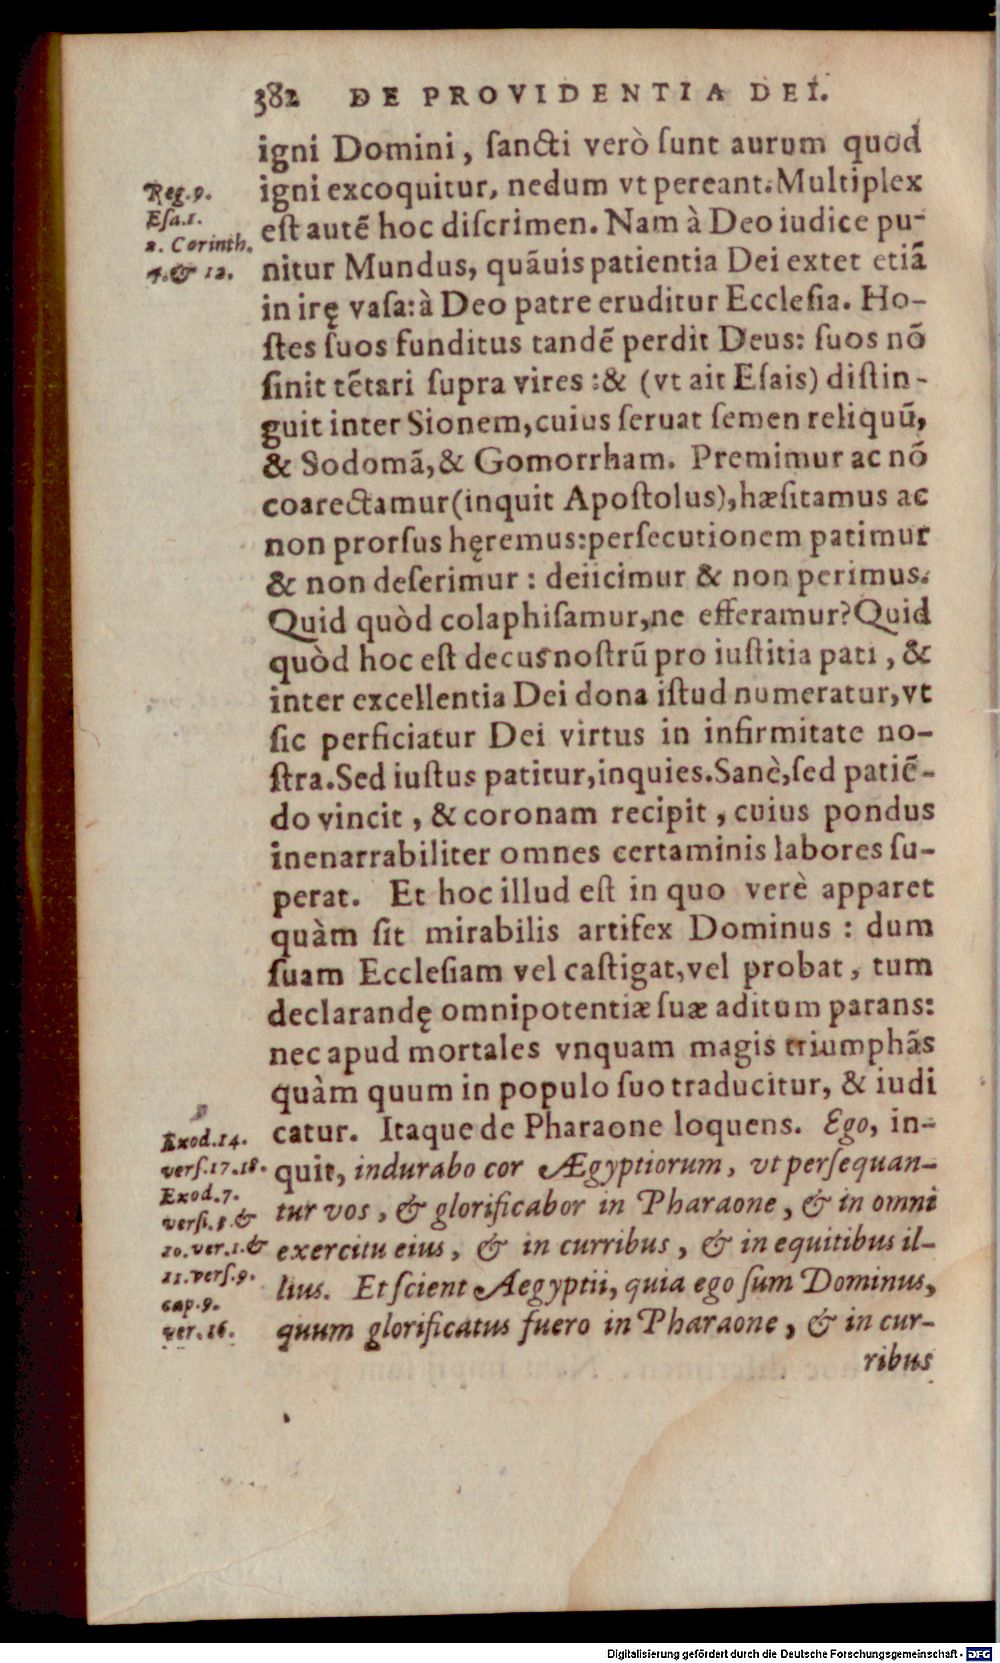 382 DE PROVIDENTIA DEI.
igni Domini, ſancti verò ſunt aurum quod
igni excoquitur, nedum vt pereant. Multiplex
eſt autẽ hoc diſcrimen. Nam à Deo iudice pu-
nitur Mundus, quãuis patientia Dei extet etiã
in irę vaſa: à Deo patre eruditur Eccleſia. Ho-
ſtes ſuos funditus tandẽ perdit Deus: ſuos nõ
ſinit tẽtari ſupra vires: & (vt ait Eſais) diſtin-
guit inter Sionem, cuius ſeruat ſemen reliquũ,
& Sodomã, & Gomorrham. Premimur ac nõ
coarectamur (inquit Apoſtolus), hæſitamus ac
non prorſus hęremus: perſecutionem patimur
& non deſerimur: deiicimur & non perimus.
Quid quòd colaphiſamur, ne efferamur? Quid
quòd hoc eſt decus noſtrũ pro iuſtitia pati, &
inter excellentia Dei dona iſtud numeratur, vt
ſic perficiatur Dei virtus in infirmitate no-
ſtra. Sed iuſtus patitur, inquies. Sanè, ſed patiẽ-
do vincit, & coronam recipit, cuius pondus
inenarrabiliter omnes certaminis labores ſu-
perat. Et hoc illud eſt in quo verè apparet
quàm ſit mirabilis artifex Dominus: dum
ſuam Eccleſiam vel caſtigat, vel probat, tum
declarandę omnipotentiæ ſuæ aditum parans:
nec apud mortales vnquam magis triumphãs
quàm quum in populo ſuo traducitur, & iudi
catur. Itaque de Pharaone loquens. Ego, in-
quit, indurabo cor Ægyptiorum, vt perſequan-
tur vos, & glorificabor in Pharaone, & in omni
exercitu eius, & in curribus, & in equitibus il-
lius. Et ſcient Aegyptii, quia ego ſum Dominus,
quum glorificatus fuero in Pharaone, & in cur-
ribus
Reg. 9.
Eſa. 1.
2. Corinth.
4. & 12.
Exod. 14.
verſ. 17. 18.
Exod. 7.
verſ. 3. &
10. ver. 1. &
11. verſ. 9.
cap. 9.
ver. 16.
Digitalisierung gefördert durch die Deutsche Forschungsgemeinschaft - DFG